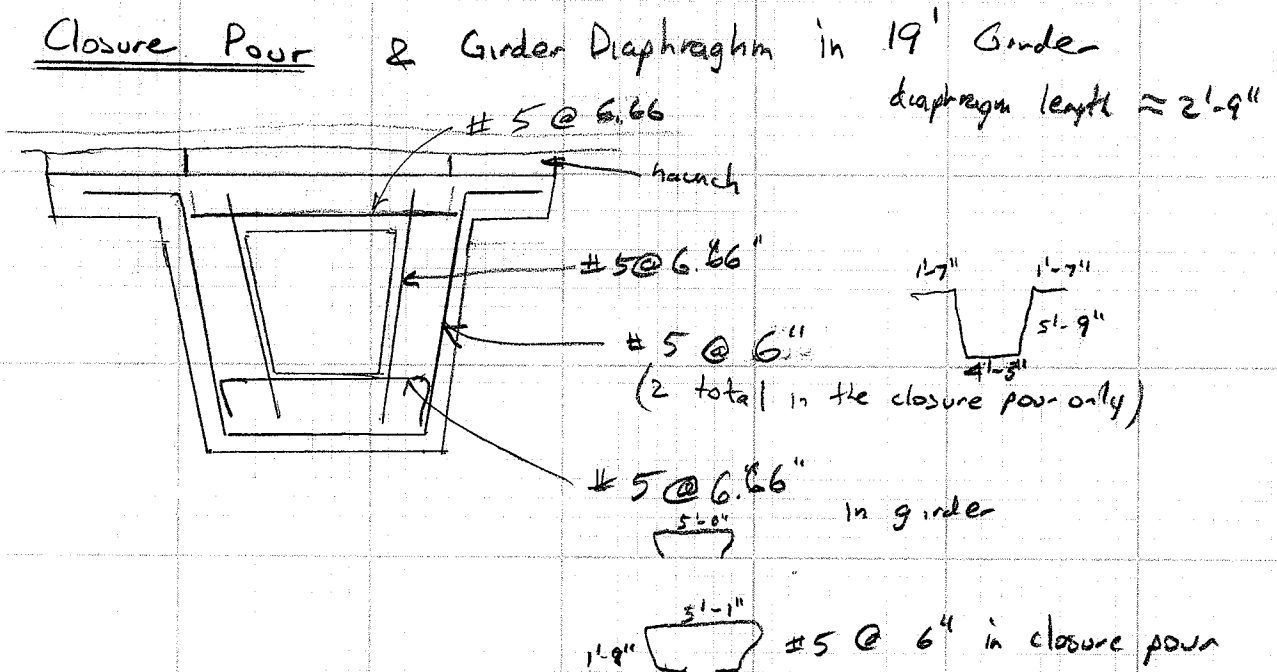 Closure Pour & Girder Diaphraghm in 19' Girder
diaphragm length ≈ 2'-9"
# 5 @ 6.66
haunch
# 5 @ 6.66"
1'-7" 1'-7"
5'-9"
# 5 @ 6"
4'-3"
(2 total in the closure pour only)
# 5 @ 6.66"
in girder
5'-0"
5'-1"
1'-9"
#5 @ 6" in closure pour